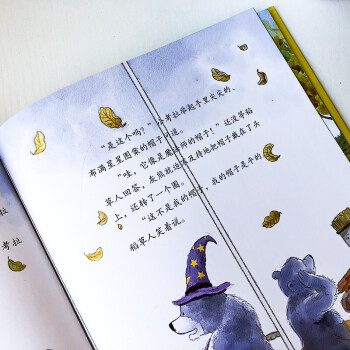 “是这个吗？”考拉举起手里尖尖的、
布满星星图案的帽子问道。
“哇，它像是魔法师的帽子！”还没等稻
草人回答，灰熊就迫不及待地把帽子戴在了头
上，还转了一个圈。
“这不是我的帽子，我的帽子是平的
稻草人笑着说。
考拉
考拉